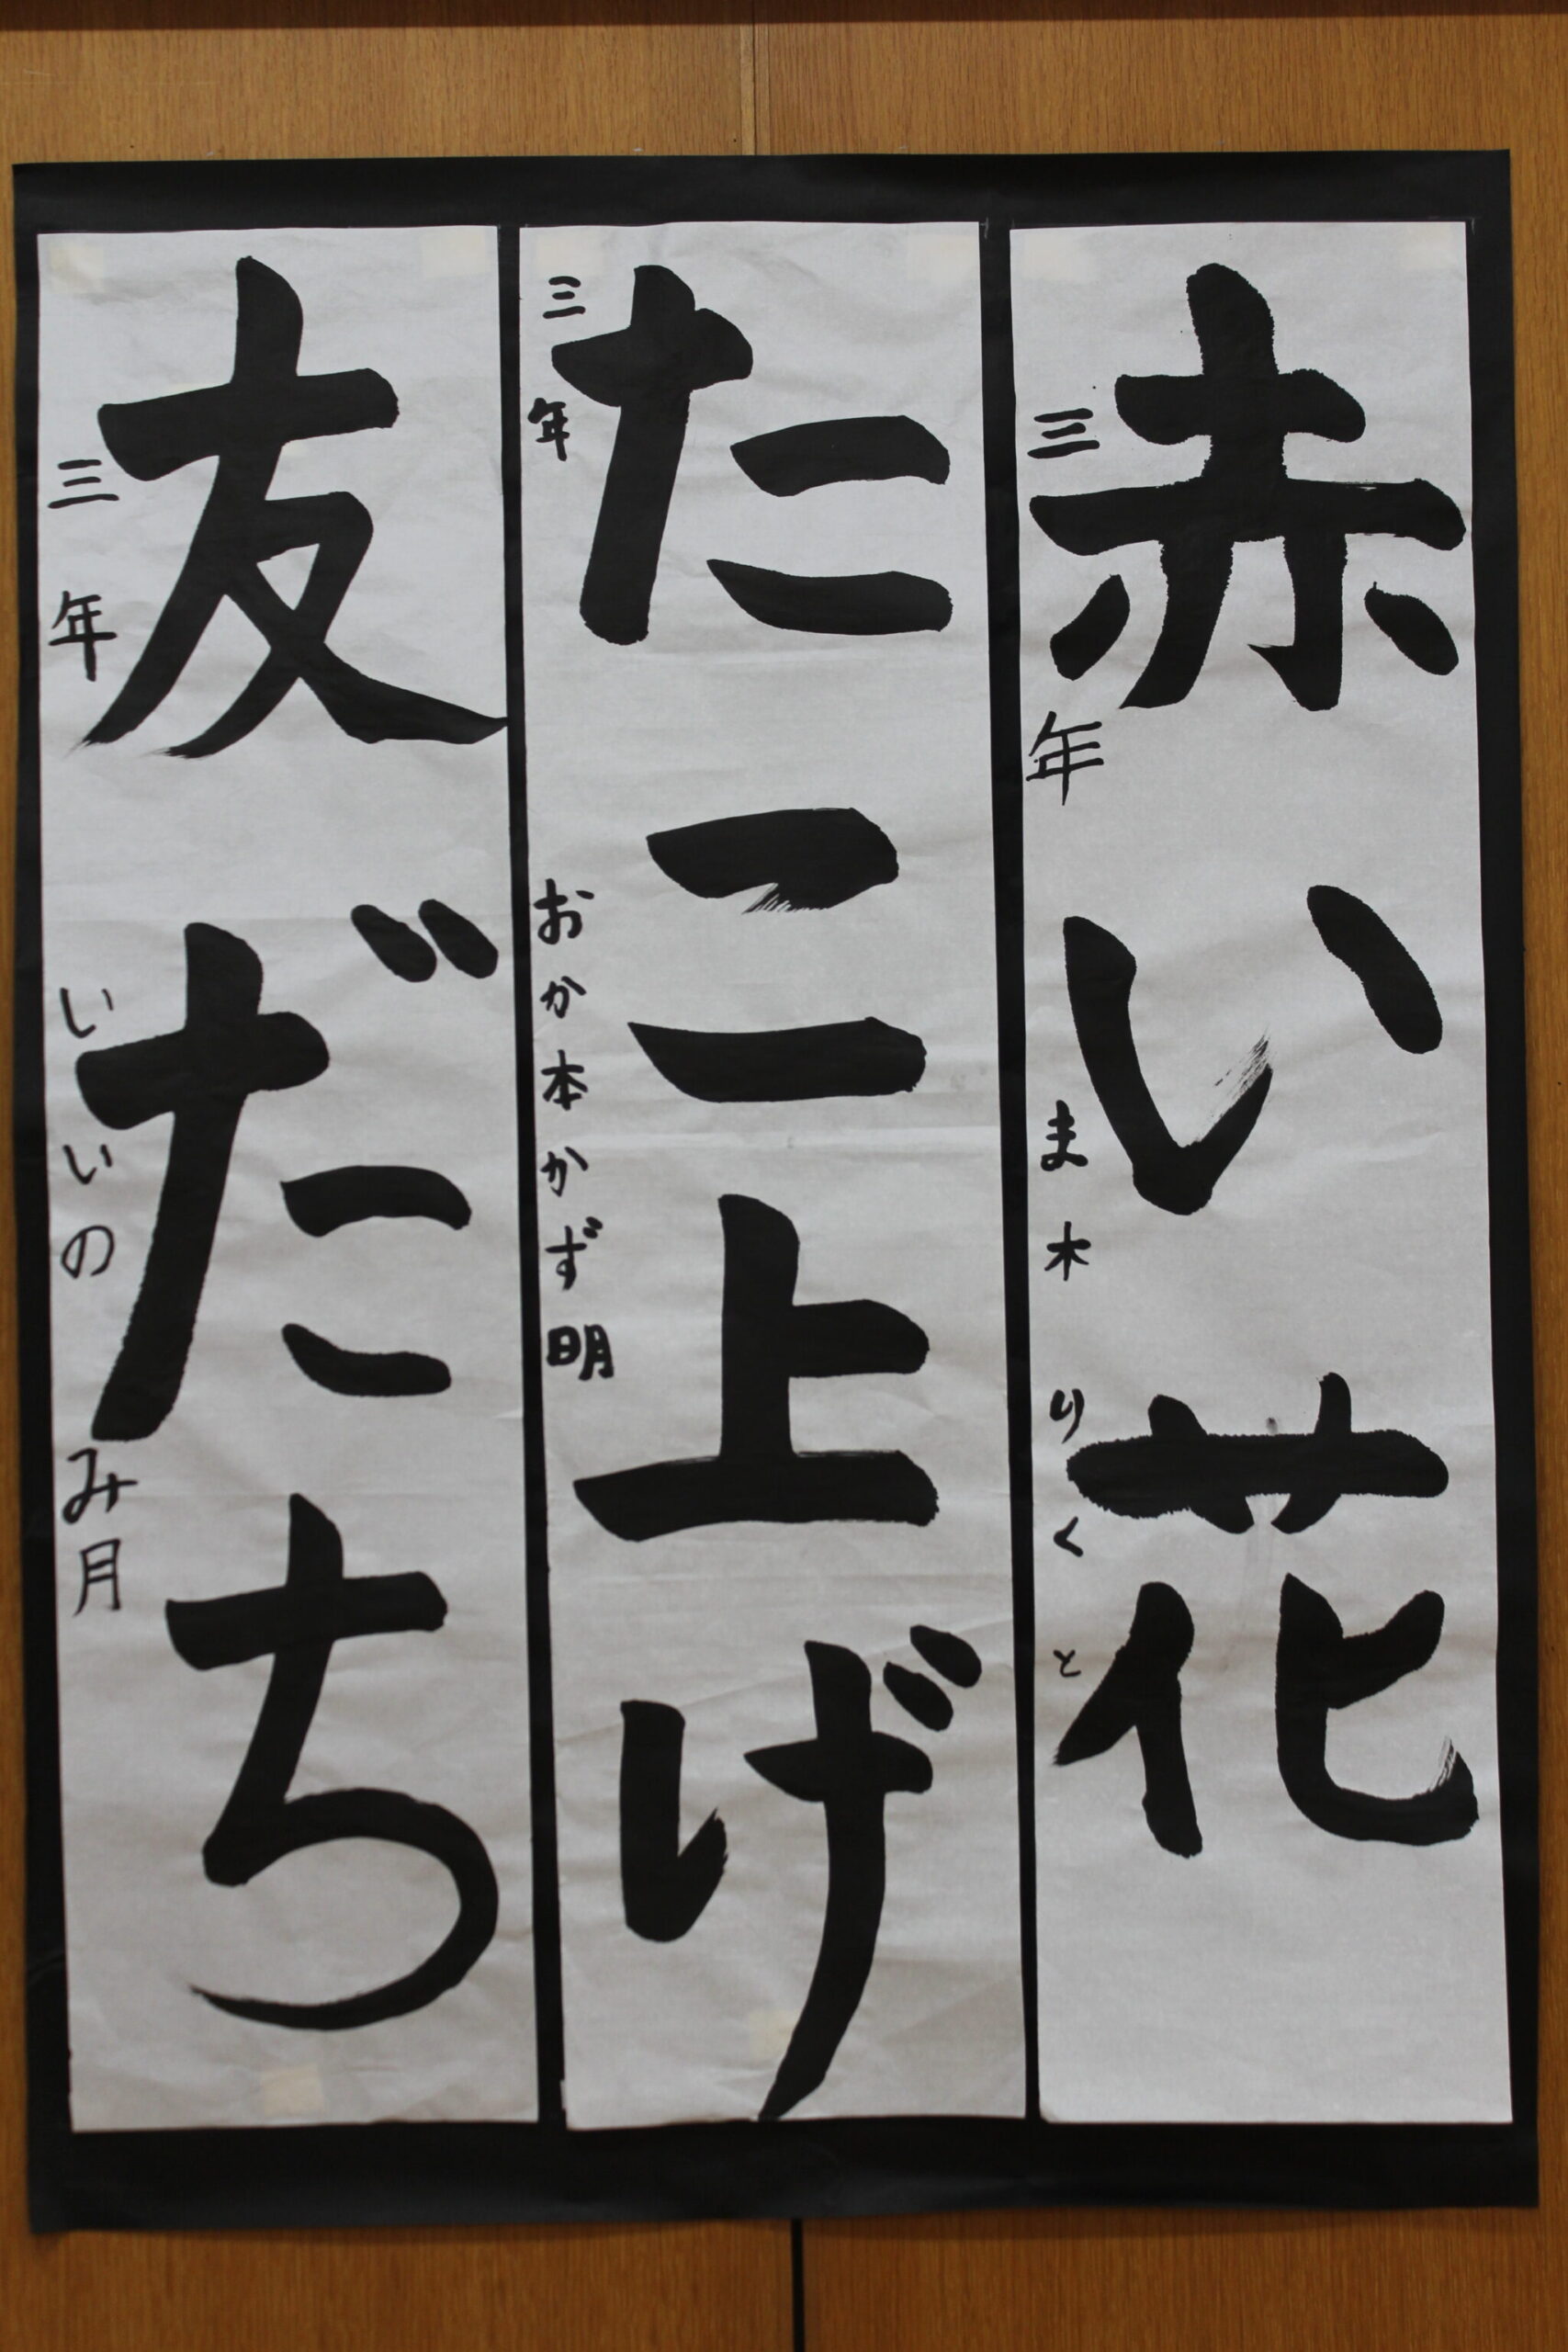 赤い花
三年 ま木 りくと
たこ上げ
三年 おか本かず明
友だち
三年 いいの み月